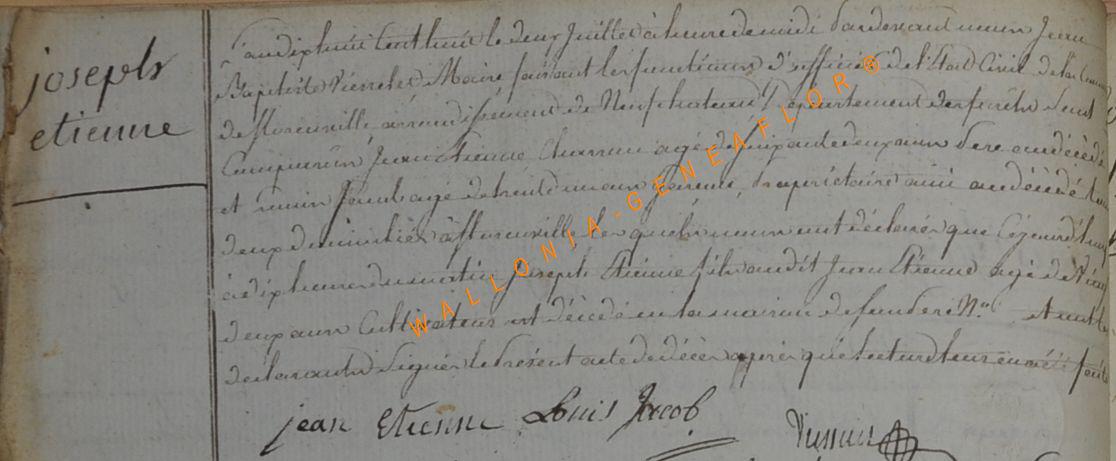 joseph
etienne
L'an dix huit Cent huit le deux Juillet à heure de midi Pardevant nous Jean
Baptiste Pierret Maire faisant les functions d'officier de l'Etat Civil de la
de florenville arrondissement de Neufchateau Département des forêts Sont
Comparus Jean Etienne agé de soixante deux ans Pere au décédé
et Louis Jacob agé de trente ans Propriétaire ami au décédé
deux domiciliés à florenville les quels nous ont déclarés que Cejourd'huy
à dix heures du matin Joseph Etienne fils audit Jean Etienne agé de vingt
deux ans Cultivateur est décédé en la maison de son Pere N° et ont les
déclarants Signé le Présent acte de décès après que lecture leur en a été faite
jean Etienne Louis Jacob Pierret
WALLONIA-GENEAFLOR®